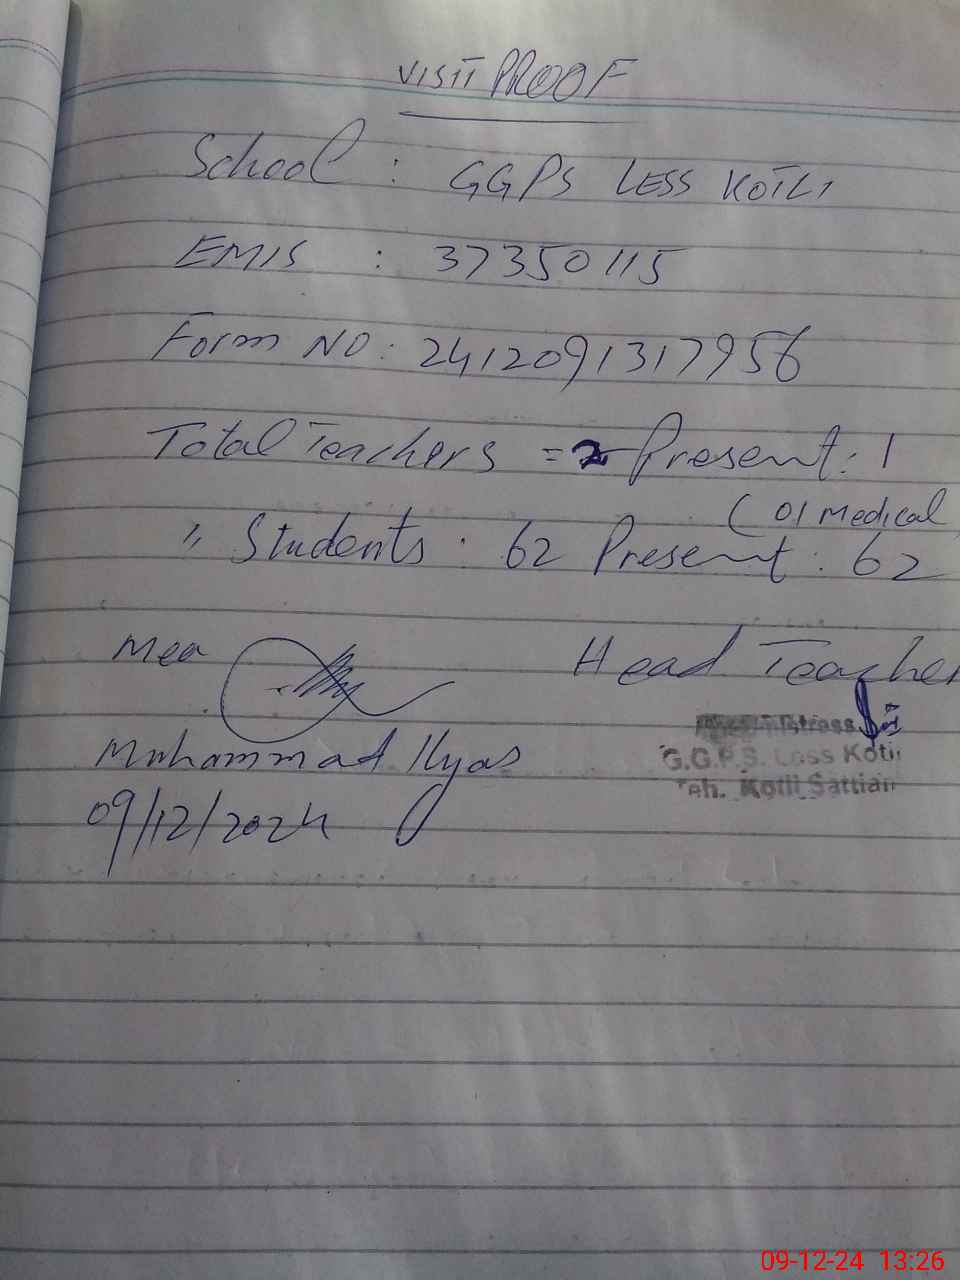 VISIT PROOF
School : GGPS LESS KOTLI
EMIS : 37350115
Form NO: 2412091317956
Total Teachers = 2 Present: 1
( 01 Medical
" Students : 62 Present : 62
Mea
Head Teacher
Muhammad Ilyas
09/12/2024
Headmistress
G.G.P.S. Less Kotli
Teh. Kotli Sattian
09-12-24 13:26